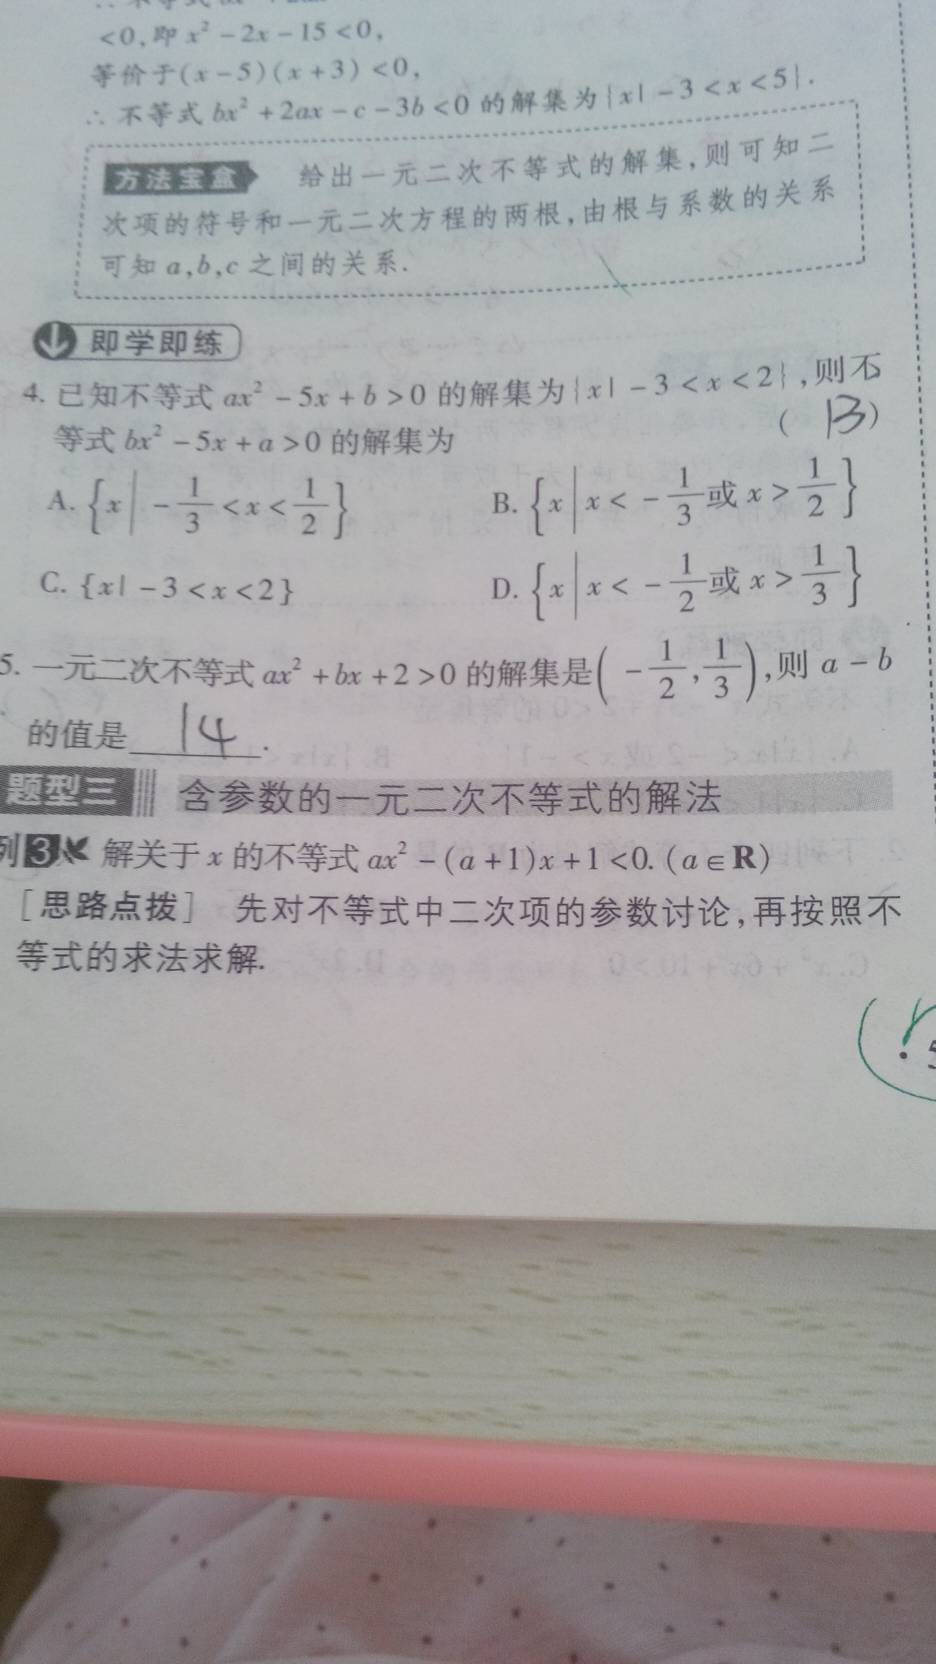 <0,即 x² - 2x - 15 < 0,
等价于(x-5)(x+3)<0,
∴ 不等式 bx² + 2ax - c - 3b < 0 的解集为{x|-3<x<5}.
方法宝盒 给出一元二次不等式的解集,则可知二
次项的符号和一元二次方程的两根,由根与系数的关系
可知 a,b,c 之间的关系.
即学即练
4. 已知不等式 ax² - 5x + b > 0 的解集为{x|-3<x<2},则不
等式 bx² - 5x + a > 0 的解集为 ( B )
A. {x|-1/3<x<1/2} B. {x|x<-1/3或x>1/2}
C. {x|-3<x<2} D. {x|x<-1/2或x>1/3}
5. 一元二次不等式 ax² + bx + 2 > 0 的解集是(-1/2,1/3),则 a - b
的值是 14 .
题型三 含参数的一元二次不等式的解法
例3 解关于 x 的不等式 ax² - (a+1)x + 1 < 0. (a∈R)
[思路点拨] 先对不等式中二次项的参数讨论,再按照不
等式的求法求解.